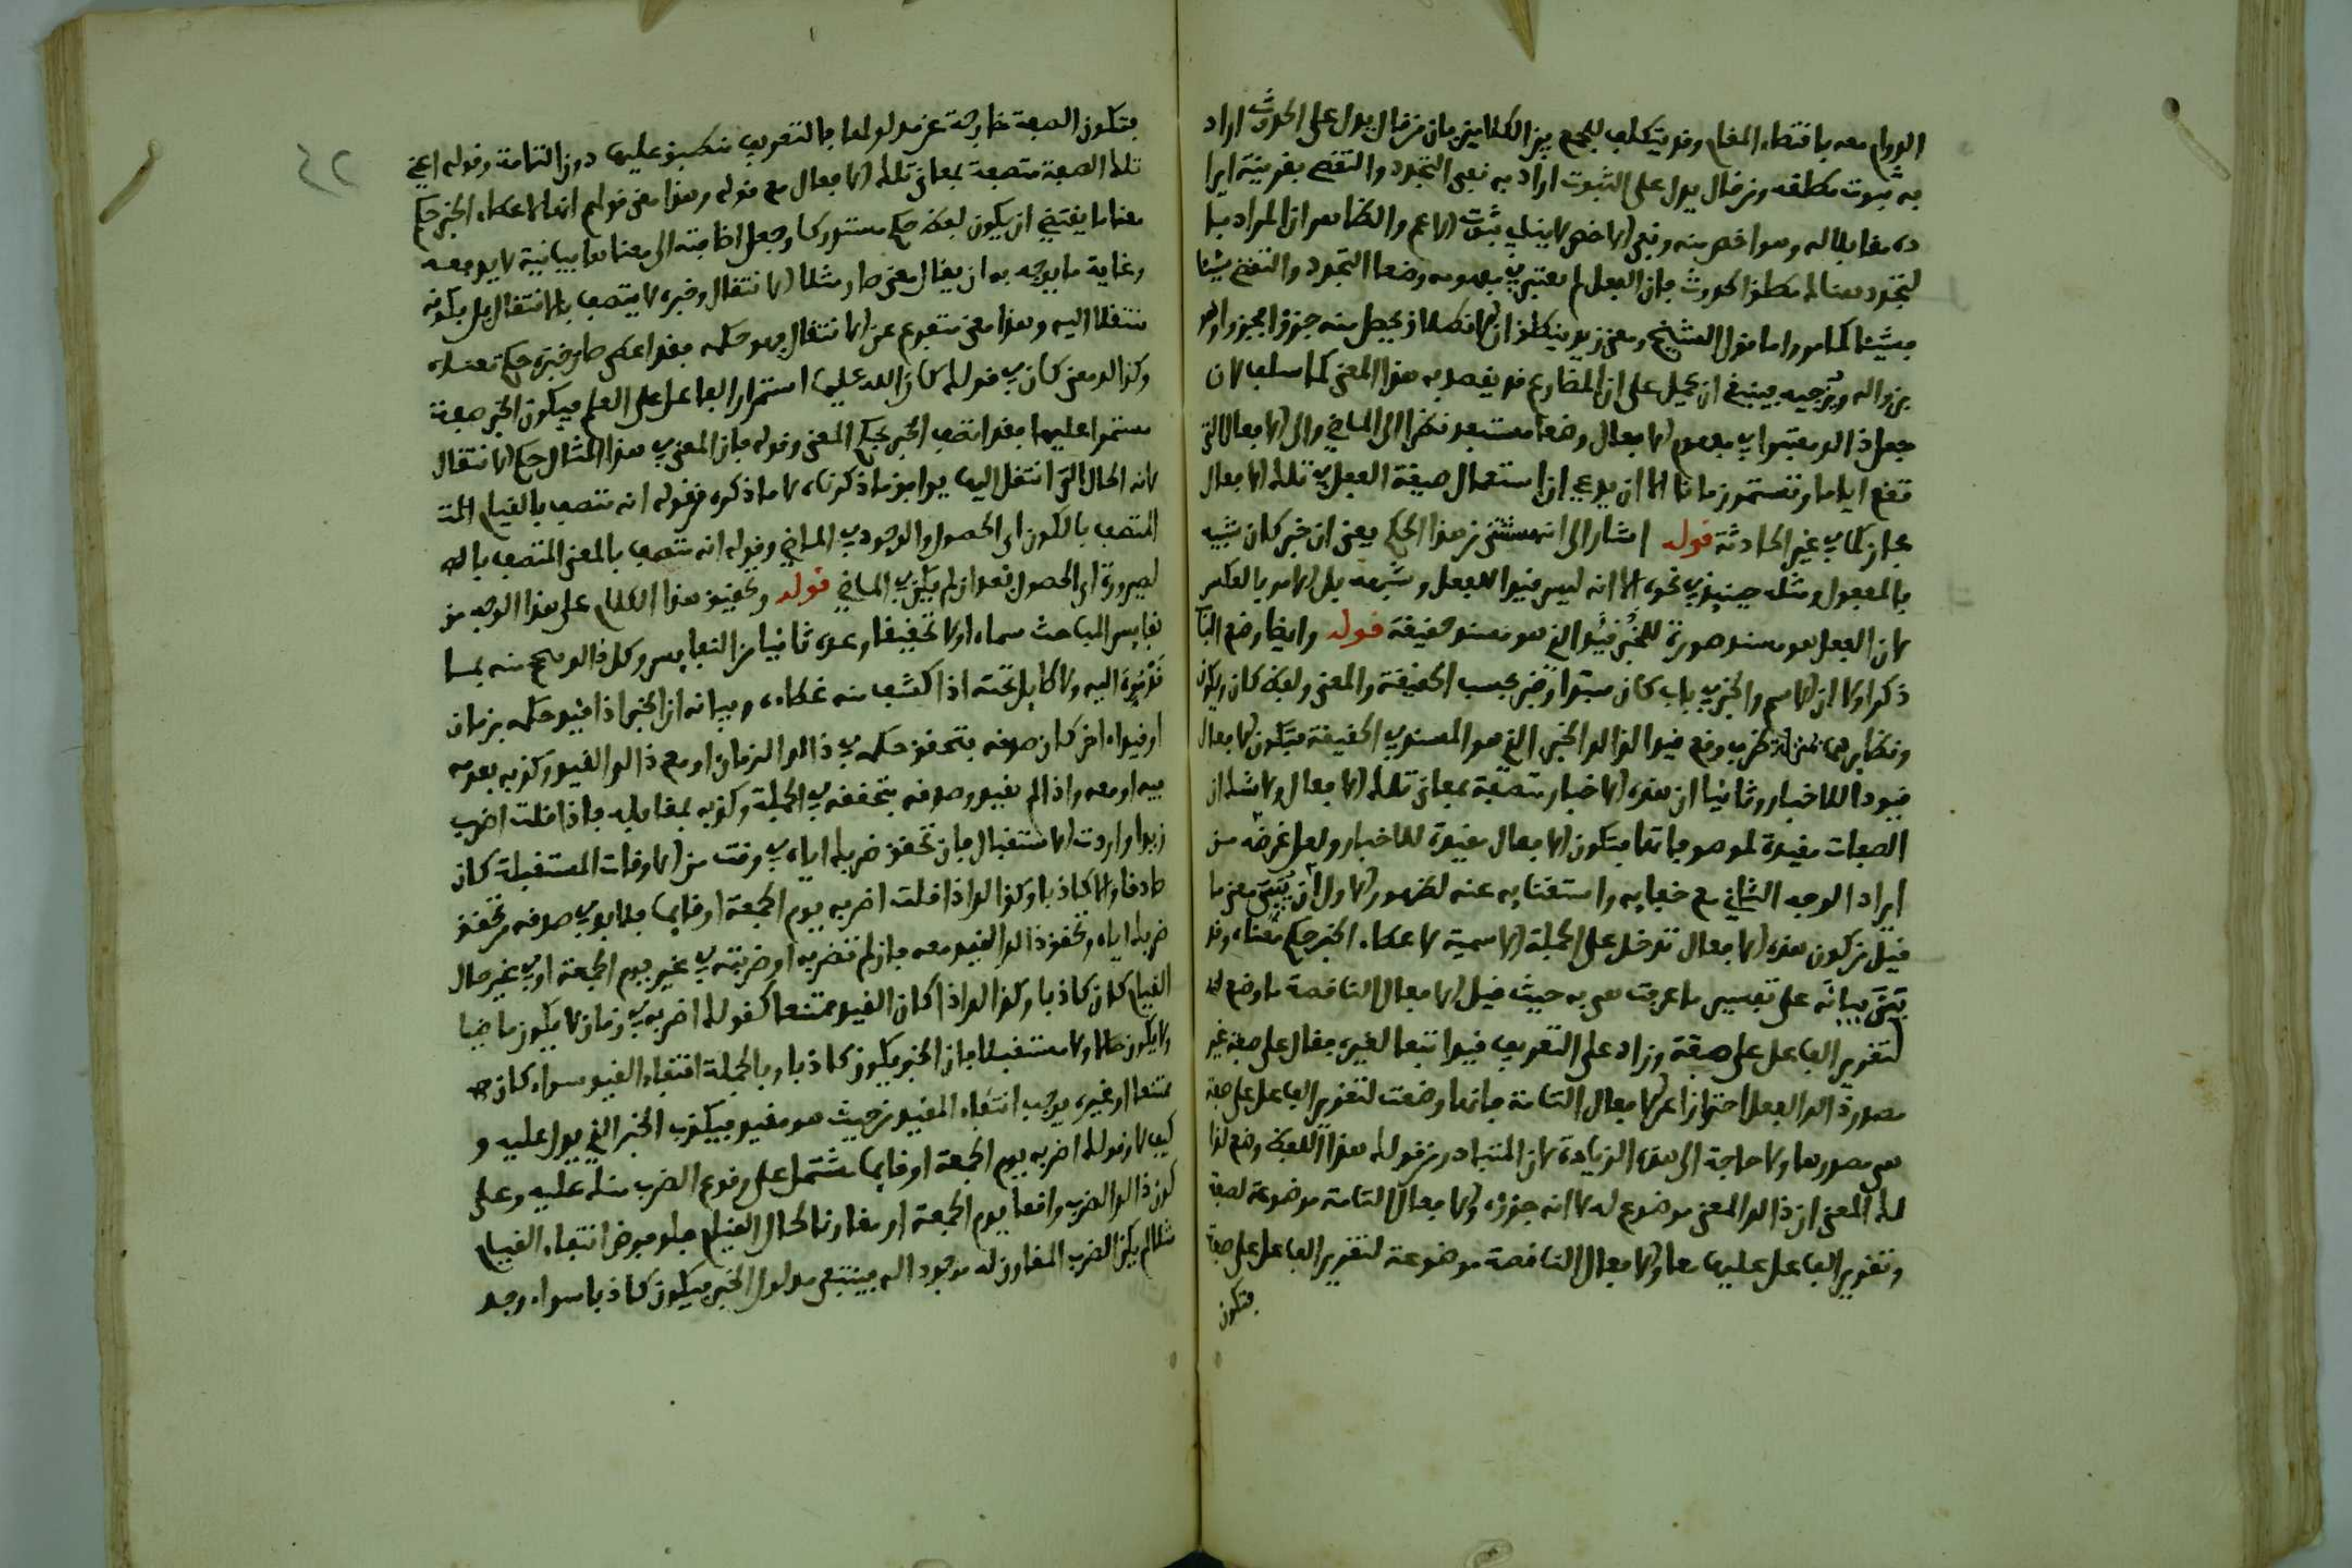 الدوام معه باقتضاء المقام وقد يتكلف للجمع بين الكلامين بان من قال يدل على الحدوث اراد
به ثبوت مطلقه ومن قال يدل على الثبوت اراد به نفي التجدد والتقضي بقرينة ايرا
ده مقابلا له وهو اخص منه ونفي الاخص لا ينافي ثبوت الاعم والظاهر ان المراد با
لتجدد هنا لا مطلق الحدوث فان الفعل لم يعتبر في مفهومه وضعا التجدد والتقضي شيئا
فشيئا كما مر واما قول الشيخ ومعنى زيد ينطلق ان الانطلاق يحصل منه جزؤا فجزؤا وهو
يزواله ويزجيه فينبغي ان يحمل على ان المضارع قد يقصد به هذا المعنى كما سلف لان
جعل ذالك معتبرا في مفهوم الافعال وضعا مستبعد نظرا الى الماضي والى الافعال التي
تقع اياما وتستمر زمانا الا ان يدعى ان استعمال صيغة الفعل في تلك الافعال
مجاز كما في غير الحادثة قوله اشار الى انه مستثنى من هذا الحكم يعنى ان خبر كان شبيه
بالمفعول ومثله حينئذ في نحوه الا انه ليس قيدا للفعل وشبهه بل الامر بالعكس
لان الفعل هو مسند صورة للخبر قيد الذي هو مسند حقيقة قوله وايضا وضع البا
ذكر اولا ان الاسم والخبر في باب كان مبتدا وخبر بحسب الحقيقة والمعنى ولفظ كان ويكون
ونظايرهما بمنزلة ظرف وقع قيدا لذالك الخبر الذي هو المسند في الحقيقة فتكون الافعال
قيودا للاخبار وثانيا ان هذه الاخبار متصفة بمعاني تلك الافعال ولا شك ان
الصفات مقيدة لموصوفاتها فتكون الافعال مقيدة للاخبار ولعل غرضه من
ايراد الوجه الثاني مع خفايه واستغنايه عنه لظهور الاول ان يبين معنى ما
قيل من كون هذه الافعال تدخل على الجملة الاسمية لاعطاء الخبر حكم معناها وقد
بين بيانه على تفسير ما عرفت هي به حيث قيل الافعال الناقصة ما وضع له
لتقرير الفاعل على صفة وزاد على التعريف قيدا تبعا لغيره فقال على صفة غير
مصدر ذالك الفعل احترازا عن الافعال التامة فانها وضعت لتقرير الفاعل على صفة
هي مصدرها ولا حاجة الى هذه الزيادة لان المتبادر من قولك هذا اللفظ وضع لذا
لك المعنى ان ذالك المعنى موضوع له لا انه جزؤه والافعال التامة موضوعة لصفة
وتقرير الفاعل عليها معا والافعال الناقصة موضوعة لتقرير الفاعل على صفة
فتكون
٤٢
فتكون الصفة خارجة عن مدلولها فالتعريف منطبق عليها دون التامة وقوله اعني
تلك الصفة متصفة بمعاني تلك الافعال مع قوله وهذا معنى قولهم انها لاعطاء الخبر حكم
معناها يقتضي ان يكون لفظ حكم مستدركا وجعل اضافته الى معناها بيانية لا يدفعه
وغاية ما يوجه به ان يقال معنى صار مثلا الانتقال وخبره لا يتصف بالانتقال بل بكونه
منتقلا اليه وهذا معنى متفرع عن الانتقال فهو حكمه فقد اعطى صار خبره حكم معناه
وكذالك معنى كان في قولك كان الله عليما استمرار الفاعل على العلم فيكون الخبر صفة
مستمرا عليها فقد اتصف الخبر بحكم المعنى وقوله فان المعنى في هذا المثال حكم الانتقال
لانه الحال التي انتقل اليها يوافق ما ذكرناه لا ما ذكره من قوله انه متصف بالقيام المت
المتصف بالكون اي الحصول والوجود في الماضي وقوله انه متصف بالمعنى المتصف بال
لصيرورة اي الحصول بعد ان لم يكن في الماضي قوله وتحقيق هذا الكلام على هذا الوجه من
نفايس المباحث سماه اولا تحقيقا وعده ثانيا من النفايس وكل ذالك صح منه بما
اليه ولا طايل تحته اذا كشف منه غطاه وبيانه ان الخبر اذا قيد حكمه بزمان
او قيد اخر كان صدقه بتحقق حكمه في ذالك الزمان او مع ذالك القيد وكذبه بعدمه
فيه او معه واذا لم يقيد وصدقه بتحققه في الجملة وكذبه بمقابله فاذا قلت اضرب
زيدا واردت الاستقبال فان تحقق ضربك اياه في وقت من الاوقات المستقبلة كان
صادقا والا كاذبا وكذالك اذا قلت اضربه يوم الجمعة او قايما فلا بد في صدقه من تحقق
ضربك اياه وتحقق ذالك القيد معه فان لم تضربه او ضربته في غير يوم الجمعة او في غير حال
القيام كان كاذبا وكذالك اذا كان القيد ممتنعا كقولك اضربه في زمان لا يكون ماضيا
ولا يكون حالا ولا مستقبلا فان الخبر يكون كاذبا وبالجملة انتفاء القيد سواء كان
ممتنعا او غيره يوجب انتفاء المقيد من حيث هو مقيد فيكذب الخبر الذي يدل عليه و
كيف لا وقولك اضربه يوم الجمعة او قايما مشتمل على وقوع الضرب منك عليه وعلى
كون ذالك الضرب واقعا يوم الجمعة او مقارنا لحال القيام فلو فرض انتفاء القيام
مثلا لم يكن الضرب المقارن له موجودا اله فينتفي مدلول الخبر فيكون كاذبا سواء وجد